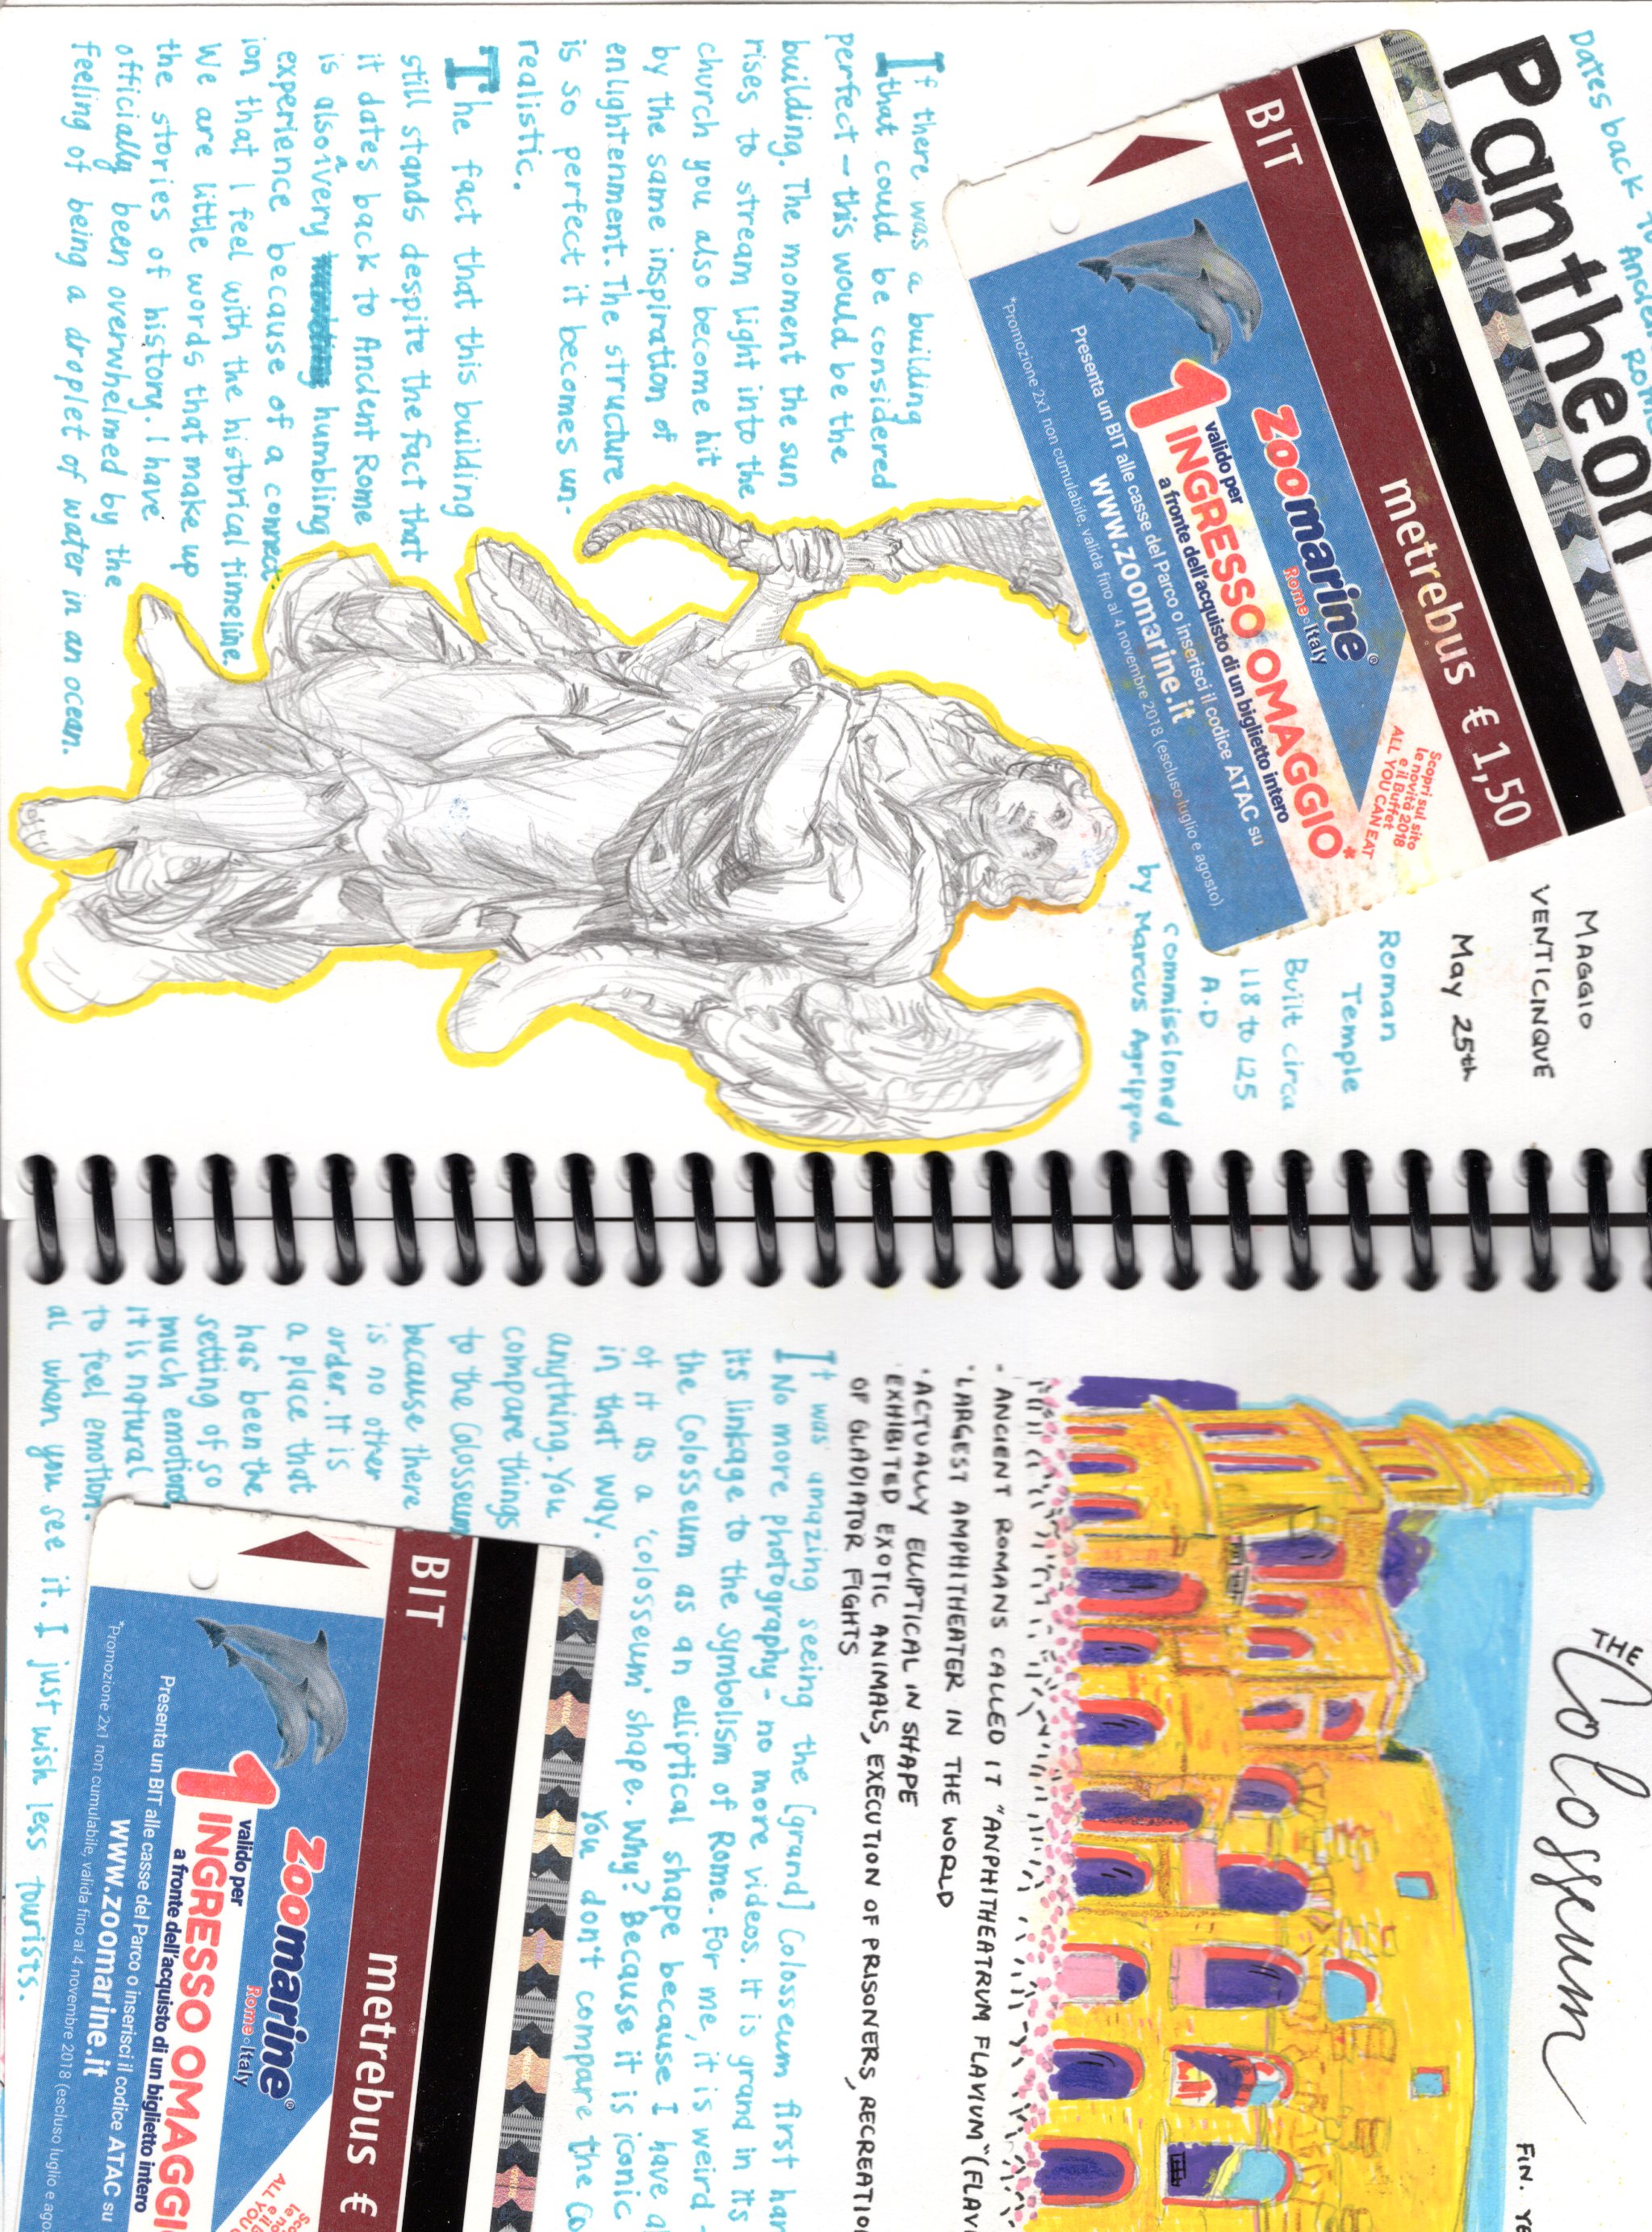 Dates back to
Ancient
Rome
Pantheon
metrebus € 1,50
BIT
Scopri sul sito
le novità 2018
e il Buffet
ALL YOU CAN EAT
Zoomarine®
Rome Italy
1 valido per
INGRESSO OMAGGIO*
a fronte dell'acquisto di un biglietto intero
Presenta un BIT alle casse del Parco o inserisci il codice ATAC su
www.zoomarine.it
*Promozione 2x1 non cumulabile, valida fino al 4 novembre 2018 (escluso luglio e agosto).
MAGGIO
VENTICINQUE
May 25th
Roman
Temple
Built circa
118 to 125
A.D
commissioned
by Marcus Agrippa
If there was a building
that could be considered
perfect - this would be the
building. The moment the sun
rises to stream light into the
church you also become hit
by the same inspiration of
enlightenment. The structure
is so perfect it becomes un-
realistic.
The fact that this building
still stands despite the fact that
it dates back to Ancient Rome
is also a very humbling
experience because of a connect-
ion that I feel with the historical timeline.
We are little words that make up
the stories of history. I have
officially been overwhelmed by the
feeling of being a droplet of water in an ocean.
THE
Colosseum
FIN. YE
- ANCIENT ROMANS CALLED IT "ANPHITHEATRUM FLAVIUM" (FLAVI
· LARGEST AMPHITHEATER IN THE WORLD
· ACTUALLY ELLIPTICAL IN SHAPE
· EXHIBITED EXOTIC ANIMALS, EXECUTION OF PRISONERS, RECREATIO
OF GLADIATOR FIGHTS
It was amazing seeing the [grand] Colosseum first han
No more photography - no more videos. It is grand in its
its linkage to the symbolism of Rome. For me, it is weird -
the Colosseum as an elliptical shape because I have a
of it as a 'colosseum' shape. Why? Because it is iconic
in that way.
You don't compare the Co
anything. You
compare things
to the Colosseum
because there
is no other
order. It is
a place that
has been the
setting of so
much emotions
It is natural
to feel emotion-
al when you see it. I just wish less tourists.
BIT
metrebus €
Zoomarine®
Rome Italy
1 valido per
INGRESSO OMAGGI
a fronte dell'acquisto di un biglietto intero
Presenta un BIT alle casse del Parco o inserisci il codice ATAC su
www.zoomarine.it
*Promozione 2x1 non cumulabile, valida fino al 4 novembre 2018 (escluso luglio e ago
ALL YOU